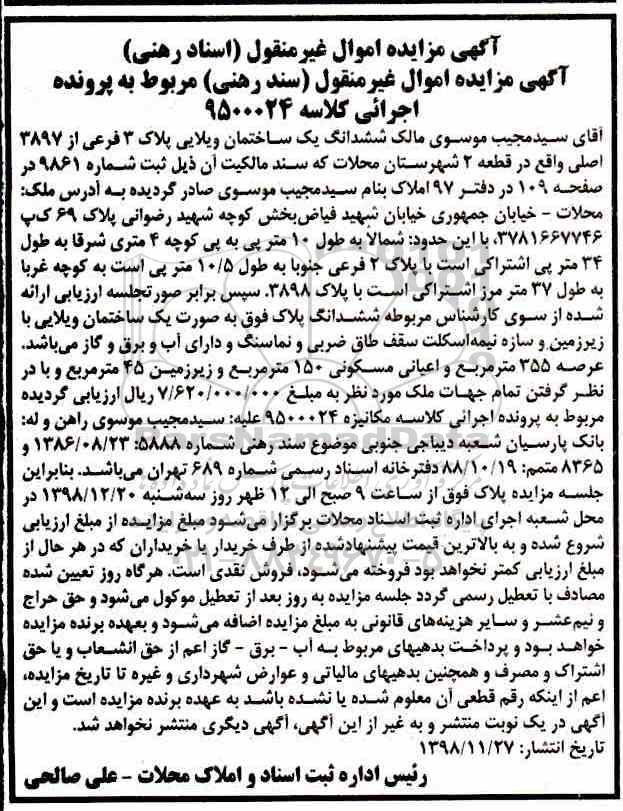 آگهی مزایده اموال غیرمنقول (اسناد رهنی)
آگهی مزایده اموال غیرمنقول (سند رهنی) مربوط به پرونده
اجرائی کلاسه ۹۵۰۰۰۲۴
آقای سیدمجیب موسوی مالک ششدانگ یک ساختمان ویلایی پلاک ۳ فرعی از ۳۸۹۷
اصلی واقع در قطعه ۲ شهرستان محلات که سند مالکیت آن ذیل ثبت شماره ۹۸۶۱ در
صفحه ۱۰۹ در دفتر ۹۷ املاک بنام سیدمجیب موسوی صادر گردیده به آدرس ملک:
محلات - خیابان جمهوری خیابان شهید فیاض‌بخش کوچه شهید رضوانی پلاک ۶۹ ک‌پ
۳۷۸۱۶۶۷۷۴۶، با این حدود: شمالا به طول ۱۰ متر پی به پی کوچه ۴ متری شرقا به طول
۳۴ متر پی اشتراکی است با پلاک ۲ فرعی جنوبا به طول ۱۰/۵ متر پی است به کوچه غربا
به طول ۳۷ متر مرز اشتراکی است با پلاک ۳۸۹۸. سپس برابر صورتجلسه ارزیابی ارائه
شده از سوی کارشناس مربوطه ششدانگ پلاک فوق به صورت یک ساختمان ویلایی با
زیرزمین و سازه نیمه‌اسکلت سقف طاق ضربی و نماسنگ و دارای آب و برق و گاز می‌باشد.
عرصه ۳۵۵ مترمربع و اعیانی مسکونی ۱۵۰ مترمربع و زیرزمین ۴۵ مترمربع و با در
نظر گرفتن تمام جهات ملک مورد نظر به مبلغ ۷/۶۲۰/۰۰۰/۰۰۰ ریال ارزیابی گردیده
مربوط به پرونده اجرائی کلاسه مکانیزه ۹۵۰۰۰۲۴ علیه: سیدمجیب موسوی راهن و له:
بانک پارسیان شعبه دیباجی جنوبی موضوع سند رهنی شماره ۵۸۸۸: ۱۳۸۶/۰۸/۲۳ و
۸۳۶۵ متمم: ۸۸/۱۰/۱۹ دفترخانه اسناد رسمی شماره ۶۸۹ تهران می‌باشد. بنابراین
جلسه مزایده پلاک فوق از ساعت ۹ صبح الی ۱۲ ظهر روز سه‌شنبه ۱۳۹۸/۱۲/۲۰ در
محل شعبه اجرای اداره ثبت اسناد محلات برگزار می‌شود مبلغ مزایده از مبلغ ارزیابی
شروع شده و به بالاترین قیمت پیشنهادشده از طرف خریدار یا خریداران که در هر حال از
مبلغ ارزیابی کمتر نخواهد بود فروخته می‌شود، فروش نقدی است. هرگاه روز تعیین شده
مصادف با تعطیل رسمی گردد جلسه مزایده به روز بعد از تعطیل موکول می‌شود و حق حراج
و نیم‌عشر و سایر هزینه‌های قانونی به مبلغ مزایده اضافه می‌شود و بعهده برنده مزایده
خواهد بود و پرداخت بدهیهای مربوط به آب - برق - گاز اعم از حق انشعاب و یا حق
اشتراک و مصرف و همچنین بدهیهای مالیاتی و عوارض شهرداری و غیره تا تاریخ مزایده،
اعم از اینکه رقم قطعی آن معلوم شده یا نشده باشد به عهده برنده مزایده است و این
آگهی در یک نوبت منتشر و به غیر از این آگهی، آگهی دیگری منتشر نخواهد شد.
تاریخ انتشار: ۱۳۹۸/۱۱/۲۷
رئیس اداره ثبت اسناد و املاک محلات - علی صالحی